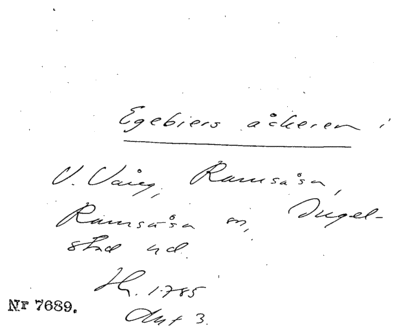 Egebiers åckeren i
V. Vång, Ramsåsa,
Ramsåsa sn, Ingel-
stad hd.
Hr. 1785
Akt 3.
Nr 7689.